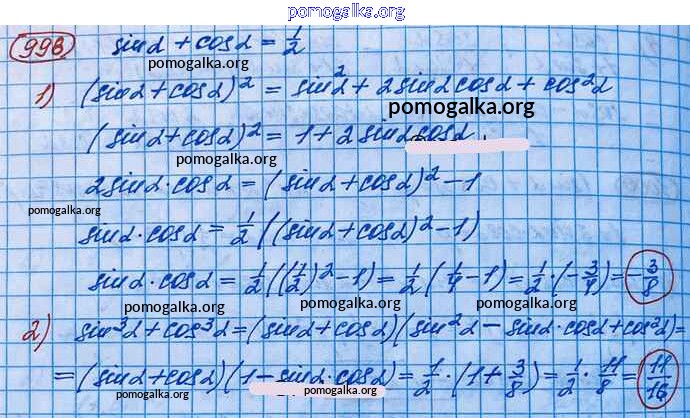 pomogalka.org
998 sinα + cosα = 1/2
pomogalka.org
1) (sinα + cosα)² = sin²α + 2sinαcosα + cos²α
pomogalka.org
(sinα + cosα)² = 1 + 2 sinαcosα
pomogalka.org
2sinα·cosα = (sinα + cosα)² − 1
pomogalka.org
sinα·cosα = 1/2 ((sinα + cosα)² − 1)
pomogalka.org
sinα·cosα = 1/2((1/2)² − 1) = 1/2 (1/4 − 1) = 1/2·(−3/4) = −3/8
pomogalka.org pomogalka.org
2) sin³α + cos³α = (sinα + cosα)(sin²α − sinα·cosα + cos²α) =
= (sinα + cosα)(1 − sinα·cosα) = 1/2·(1 + 3/8) = 1/2·11/8 = 11/16
pomogalka.org pomogalka.org